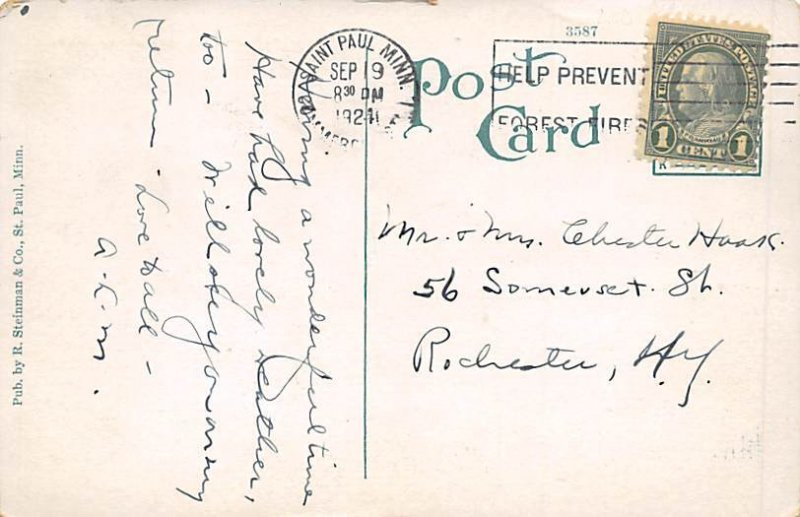 3587
Post
Card
SAINT PAUL MINN.
SEP 19
8 30 PM
1924
HELP PREVENT
FOREST FIRES
UNITED STATES POSTAGE
FRANKLIN
1 CENT 1
Having a wonderful time
Have had lovely weather,
too - Will see you on my
return - Love to all -
A. L. M.
Mr. & Mrs. Chester Haak.
56 Somerset St.
Rochester, N.Y.
Pub. by R. Steinman & Co., St. Paul, Minn.